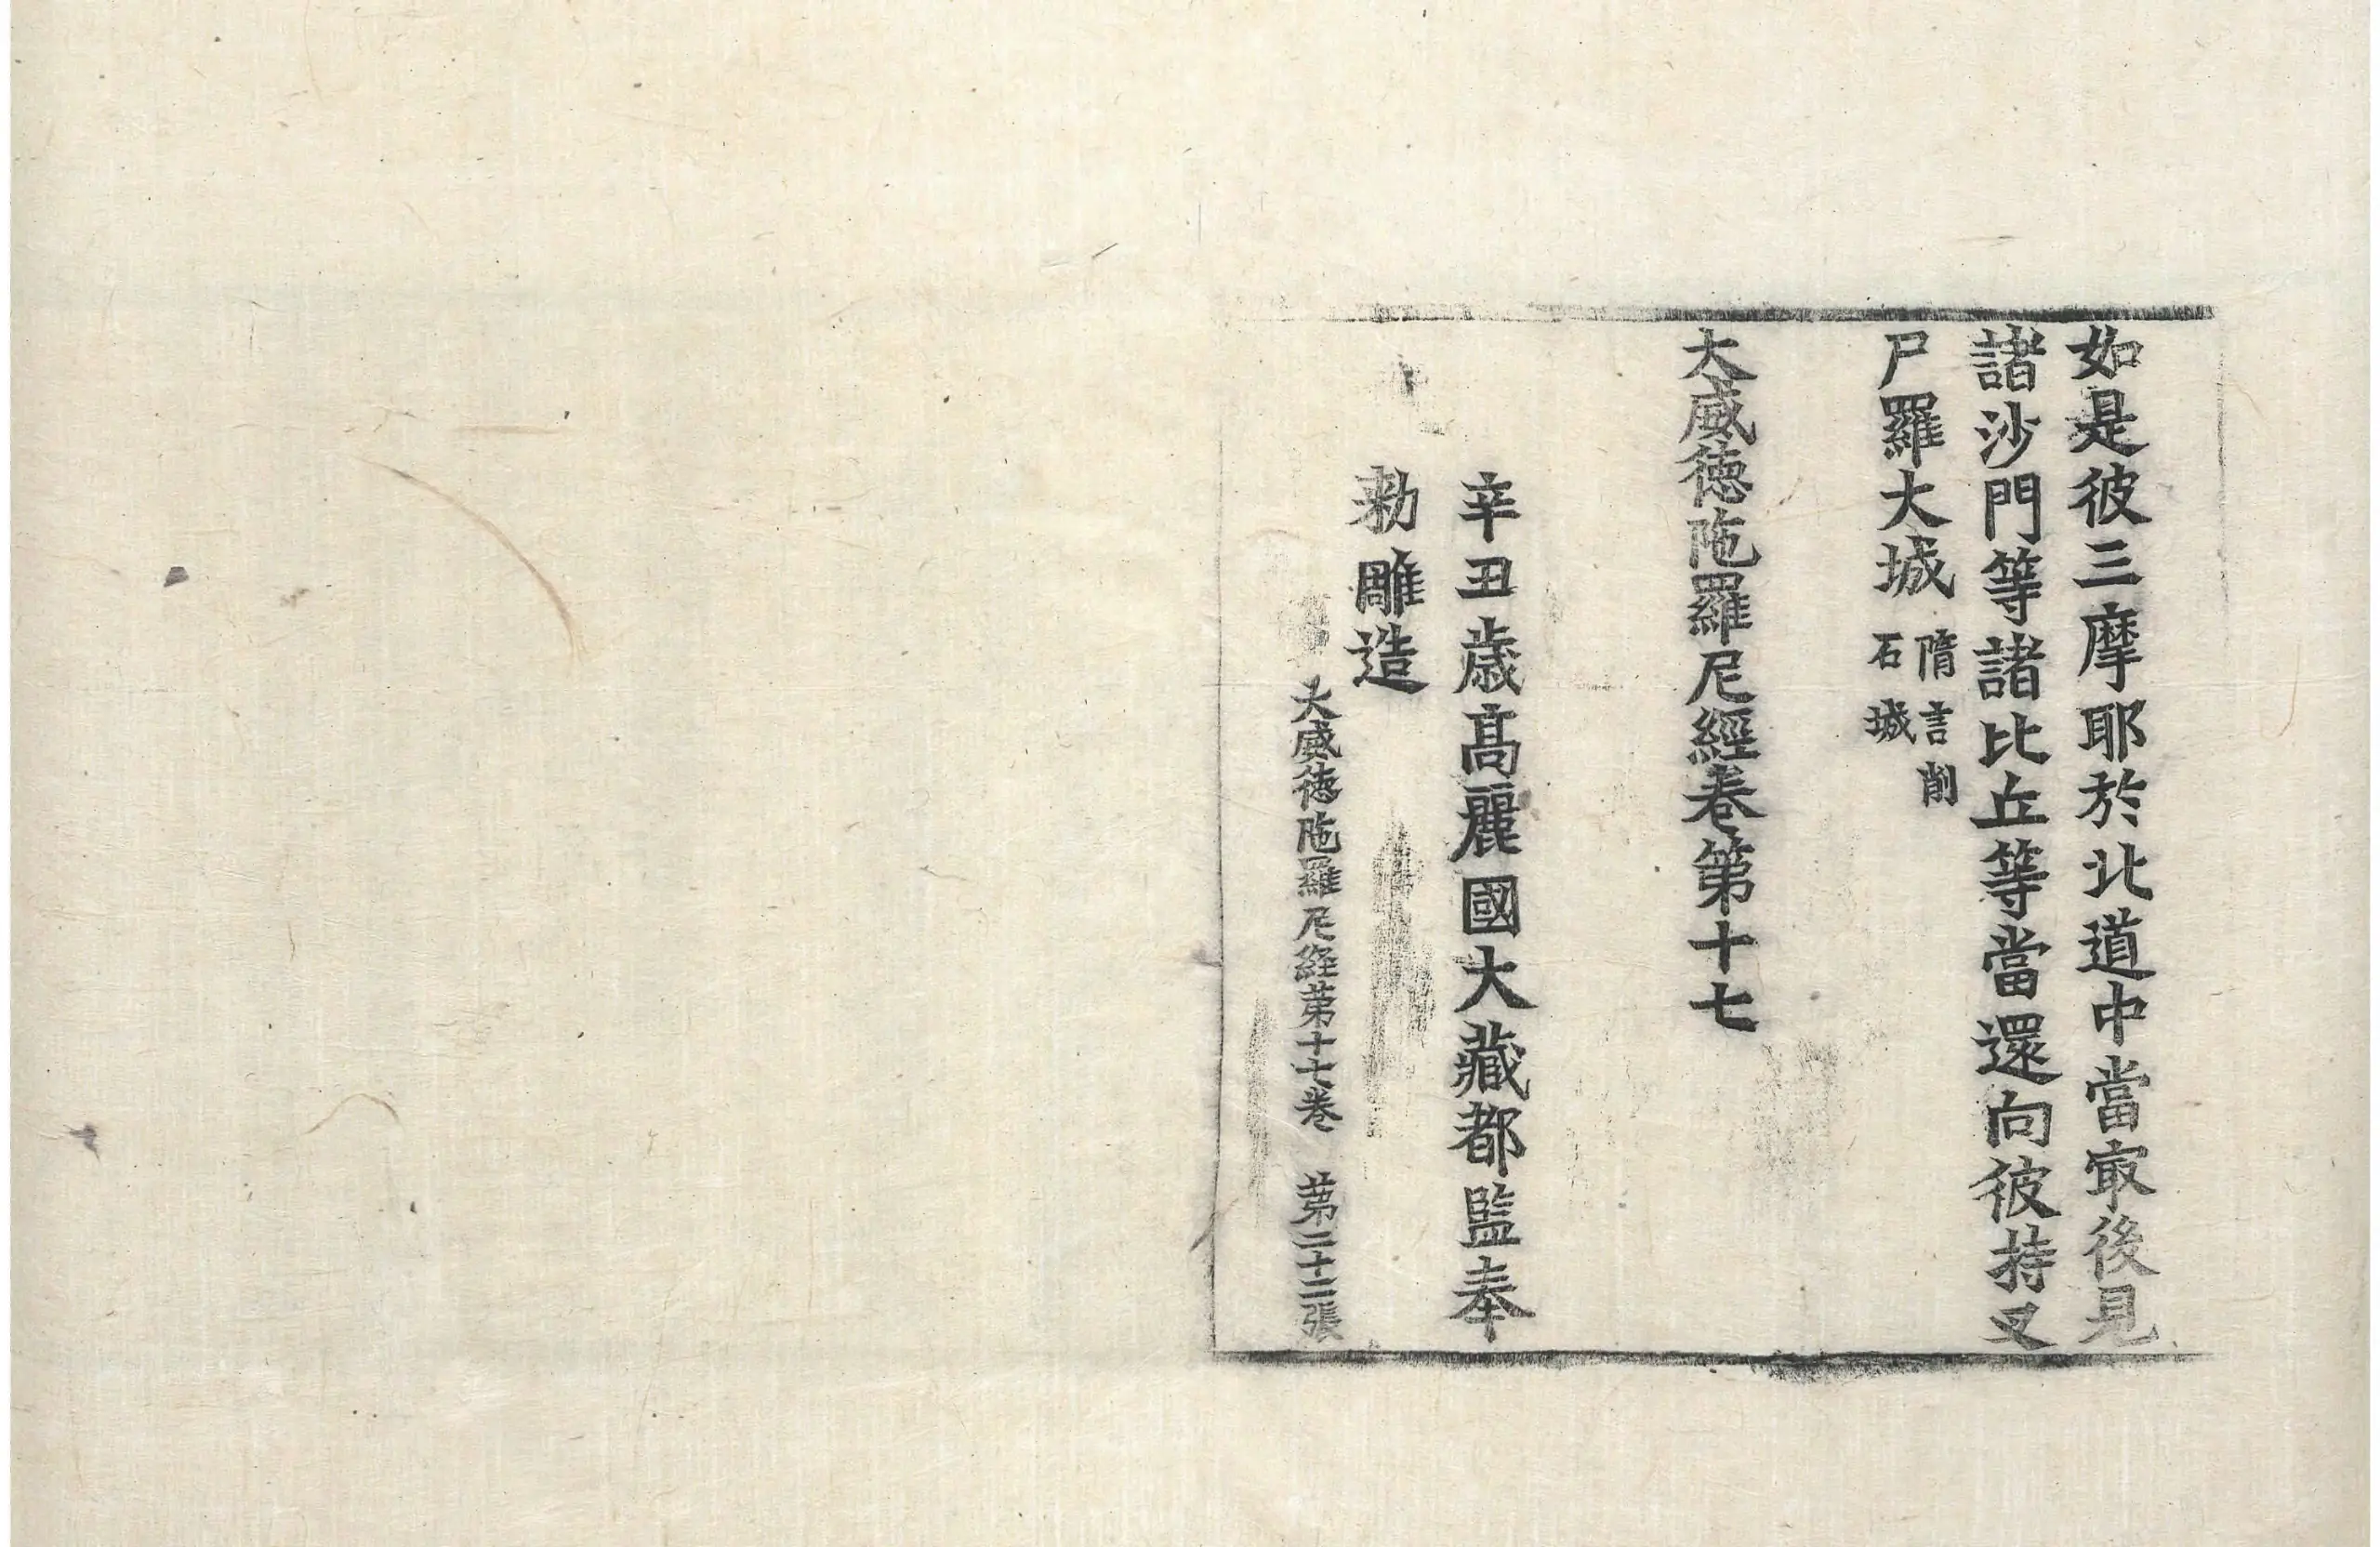 如是彼三摩耶於北道中當㝡後見
諸沙門等諸比丘等當還向彼持叉
尸羅大城隋言削石城
大威德陁羅尼經卷第十七
辛丑歲高麗國大藏都監奉
勑雕造
大威德陁羅尼經第十七卷　第二十二張